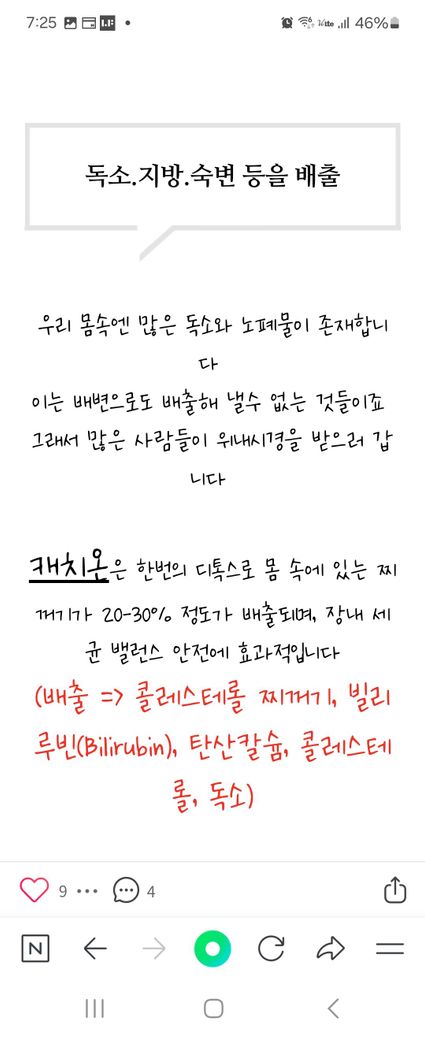 7:25
46%
독소.지방.숙변 등을 배출
우리 몸속엔 많은 독소와 노폐물이 존재합니
다
이는 배변으로도 배출해 낼수 없는 것들이죠
그래서 많은 사람들이 위내시경을 받으러 갑
니다
캐치온은 한번의 디톡스로 몸 속에 있는 찌
꺼기가 20-30% 정도가 배출되며, 장내 세
균 밸런스 안전에 효과적입니다
(배출 => 콜레스테롤 찌꺼기, 빌리
루빈(Bilirubin), 탄산칼슘, 콜레스테
롤, 독소)
9
4
N